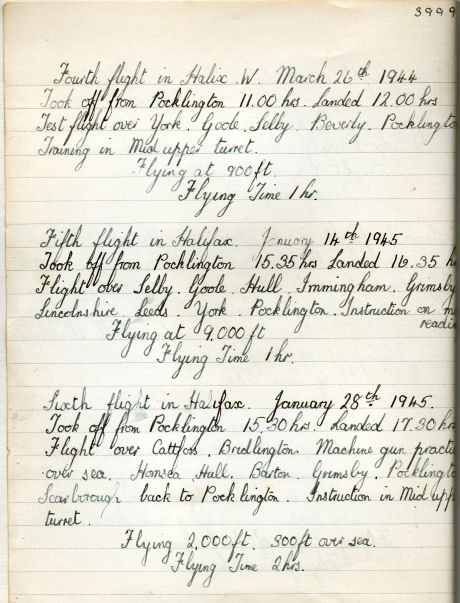 3999
Fourth flight in Halix. W. March 26th 1944
Took off from Pocklington 11.00 hrs. Landed 12.00 hrs
Test flight over York. Goole. Selby. Beverly. Pocklingto
Training in Mid upper turret.
Flying at 900ft.
Flying Time 1 hr.
Fifth flight in Halifax. January 14th 1945
Took off from Pocklington 15.35 hrs Landed 16.35 h
Flight over Selby. Goole. Hull. Immingham. Grimsby
Lincolnshire. Leeds. York. Pocklington. Instruction on m
readin
Flying at 9,000 ft
Flying Time 1 hr.
Sixth flight in Halifax. January 28th 1945.
Took off from Pocklington 15.30 hrs. Landed 17.30 hrs
Flight over Cattfoss, Bridlington. Machine gun practi
over sea. Hornsea, Hull, Barton, Grimsby, Pocklingto
Scarborough back to Pocklington. Instruction in Mid upp
turret.
Flying 2,000ft. 300ft over sea.
Flying Time 2hrs.